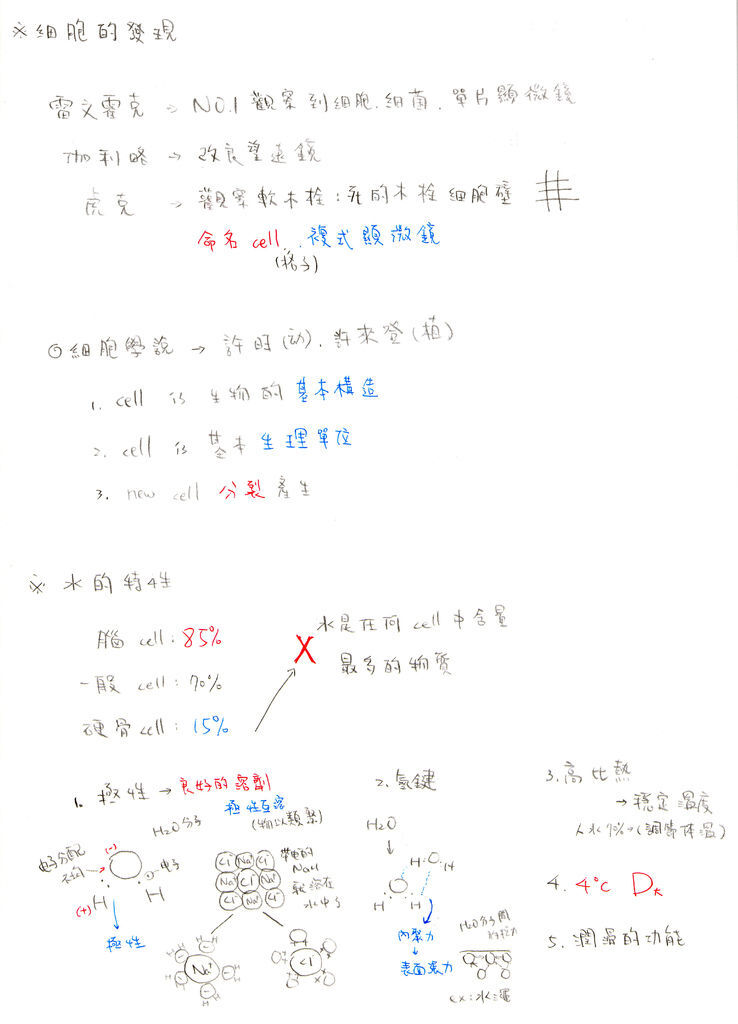 ※細胞的發現
雷文霍克 → NO.1 觀察到細胞.細菌.單片顯微鏡
伽利略 → 改良望遠鏡
虎克 → 觀察軟木栓:死的木栓細胞壁
命名 cell. 複式顯微鏡
(格子)
◎細胞學說 → 許旺(动).許來登(植)
1. cell is 生物的基本構造
2. cell is 基本生理單位
3. new cell 分裂產生
※ 水的特性
腦 cell: 85%
一般 cell: 70%
硬骨 cell: 15%
X 水是在任何 cell 中含量
最多的物質
1. 極性 → 良好的溶劑
極性互溶
(物以類聚)
H₂O分子
電子分配
不均
(-)
電子
H H
(+)
極性
Cl⁻ Na⁺ Cl⁻
Na⁺ Cl⁻ Na⁺
Cl⁻ Na⁺ Cl⁻
帶電的
NaCl
就溶在
水中了
Na⁺
Cl⁻
2. 氫鍵
H₂O
H O H
H H
內聚力
表面張力
H₂O分子間
的拉力
ex:水黽
3. 高比熱
→ 穩定溫度
人水70%→(調節体溫)
4. 4°C D大
5. 潤滑的功能